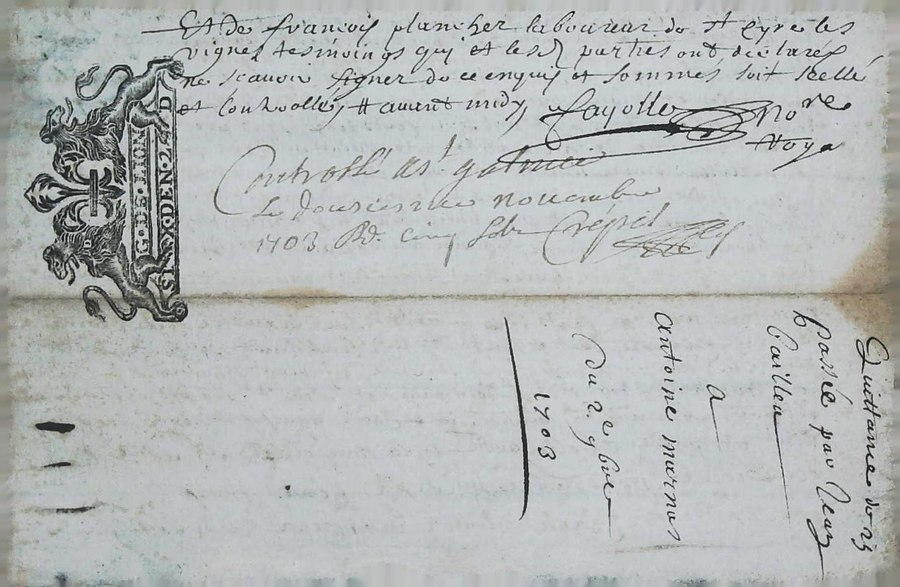 Et de françois plancher laboureur de St Cyre les
vignes tesmoings quy et lesd parties ont declarez
ne scavoir signer de ce enquis et sommes soit scellé
et controollé avant midy Fayolle No.re
Roya
Controllé a St galmier
Le dousiesme novembre
1703 Rd. cinq sols Crepet
G·DE·LION
SIX·DEN·24 D
Quittance de 25
passée par Jean
Caillea
A
antoine marnas
Du 2e 9bre
1703